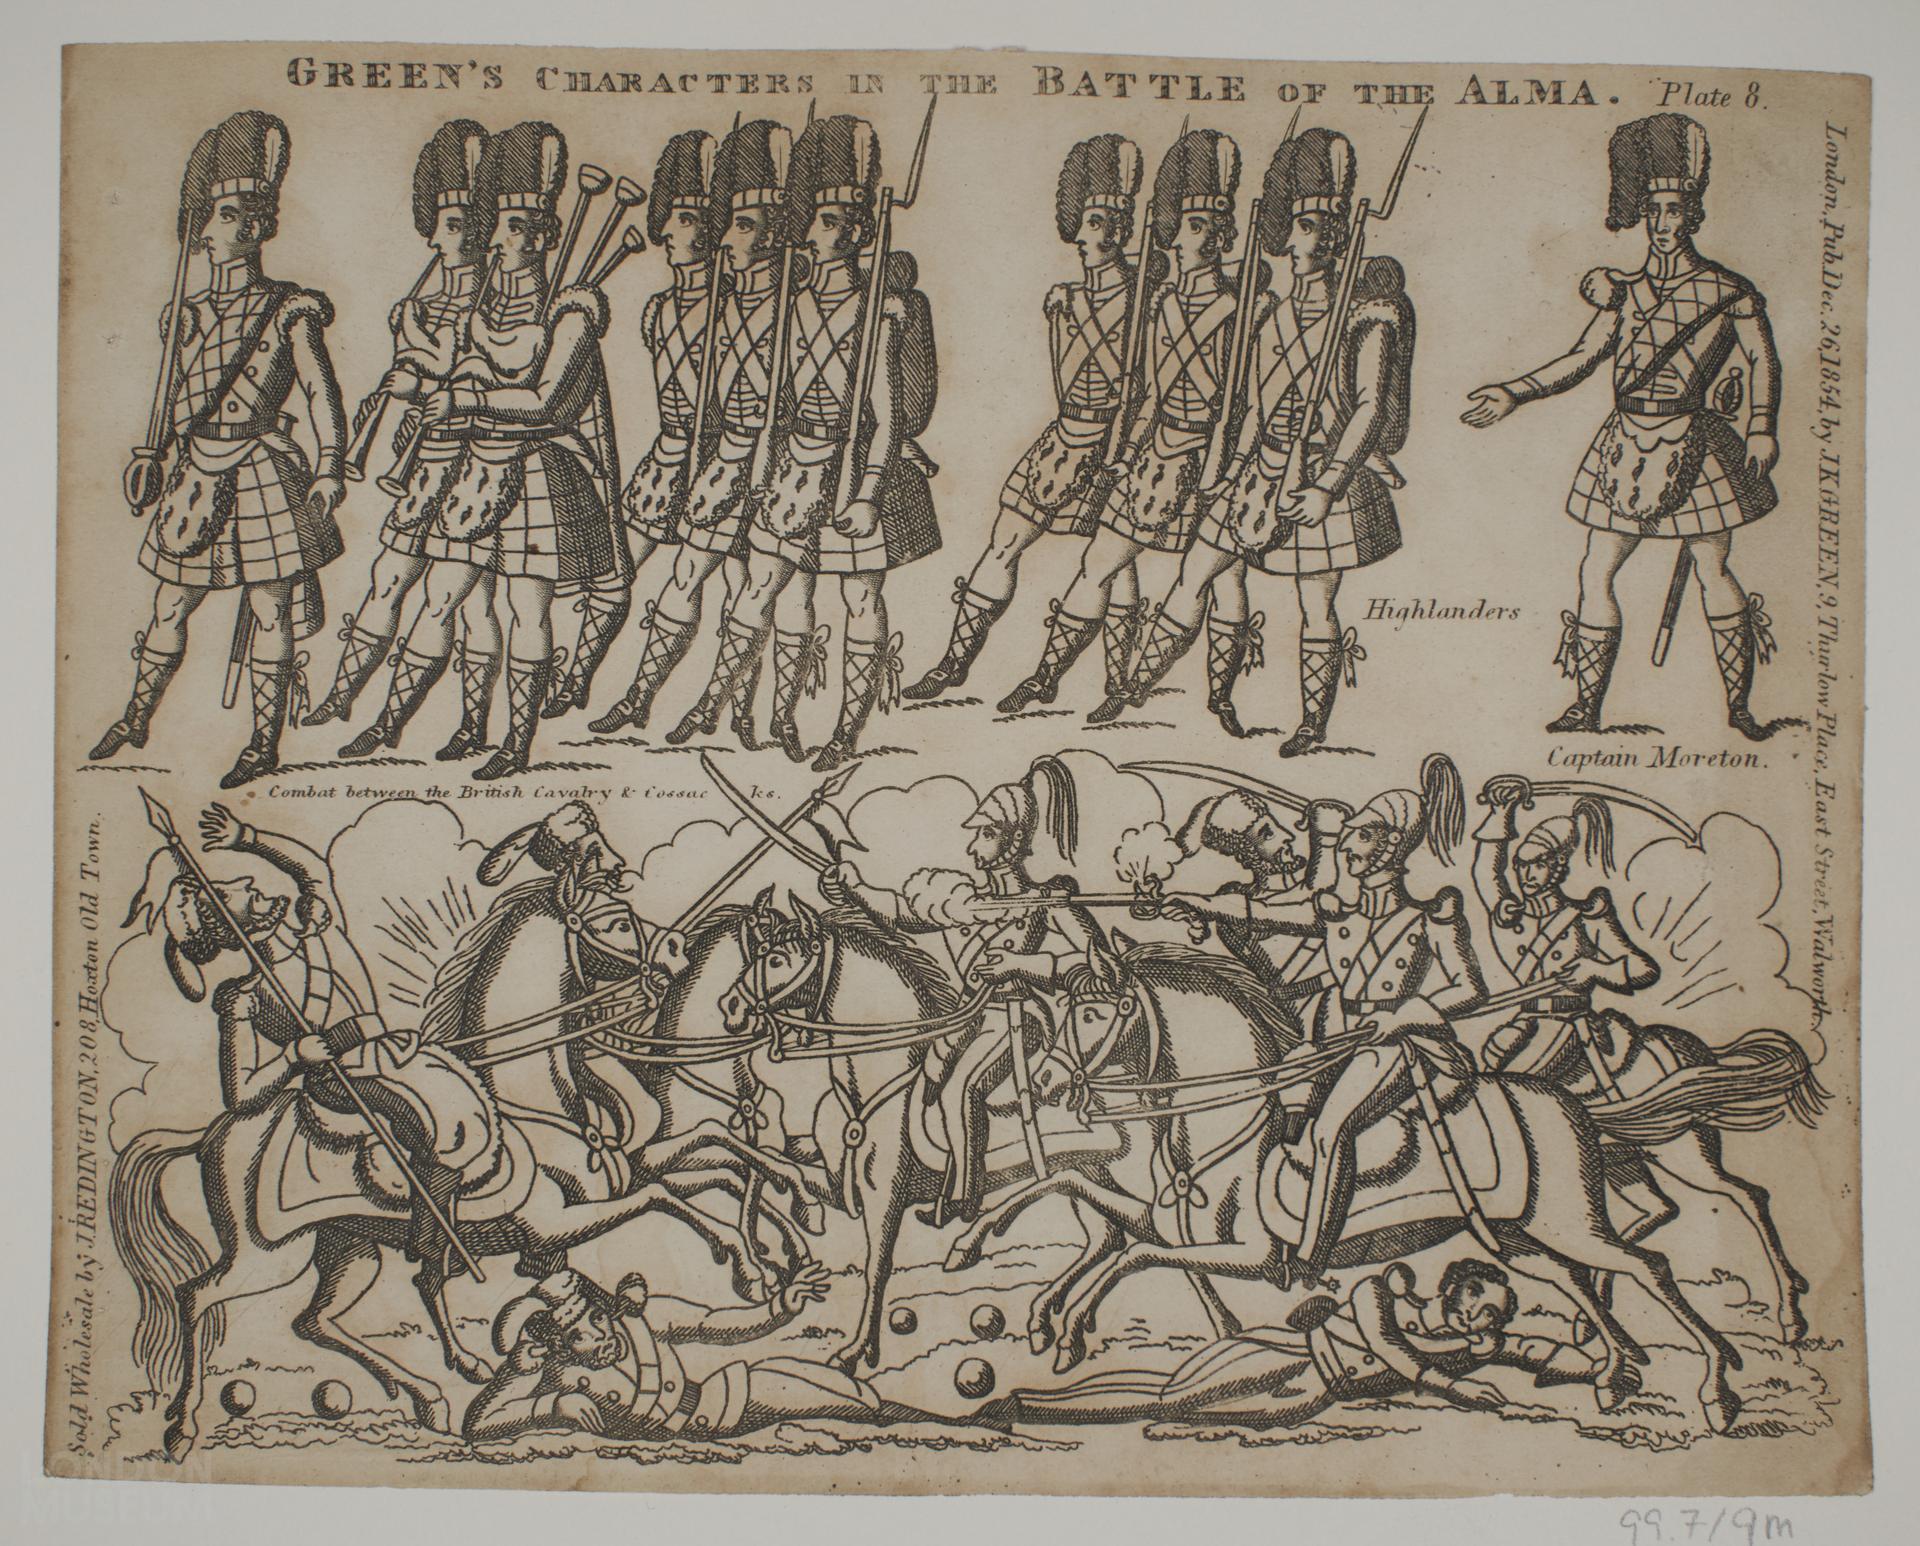 GREEN'S CHARACTERS IN THE BATTLE OF THE ALMA. Plate 8.
London, Pub. Dec. 26, 1854, by J.K. GREEN, 9, Thurlow Place, East Street, Walworth.
Highlanders
Captain Moreton.
Combat between the British Cavalry & Cossac ks.
Sold Wholesale by J. REDINGTON, 208, Hoxton Old Town.
LONDON
MUSEUM
99.7/9m